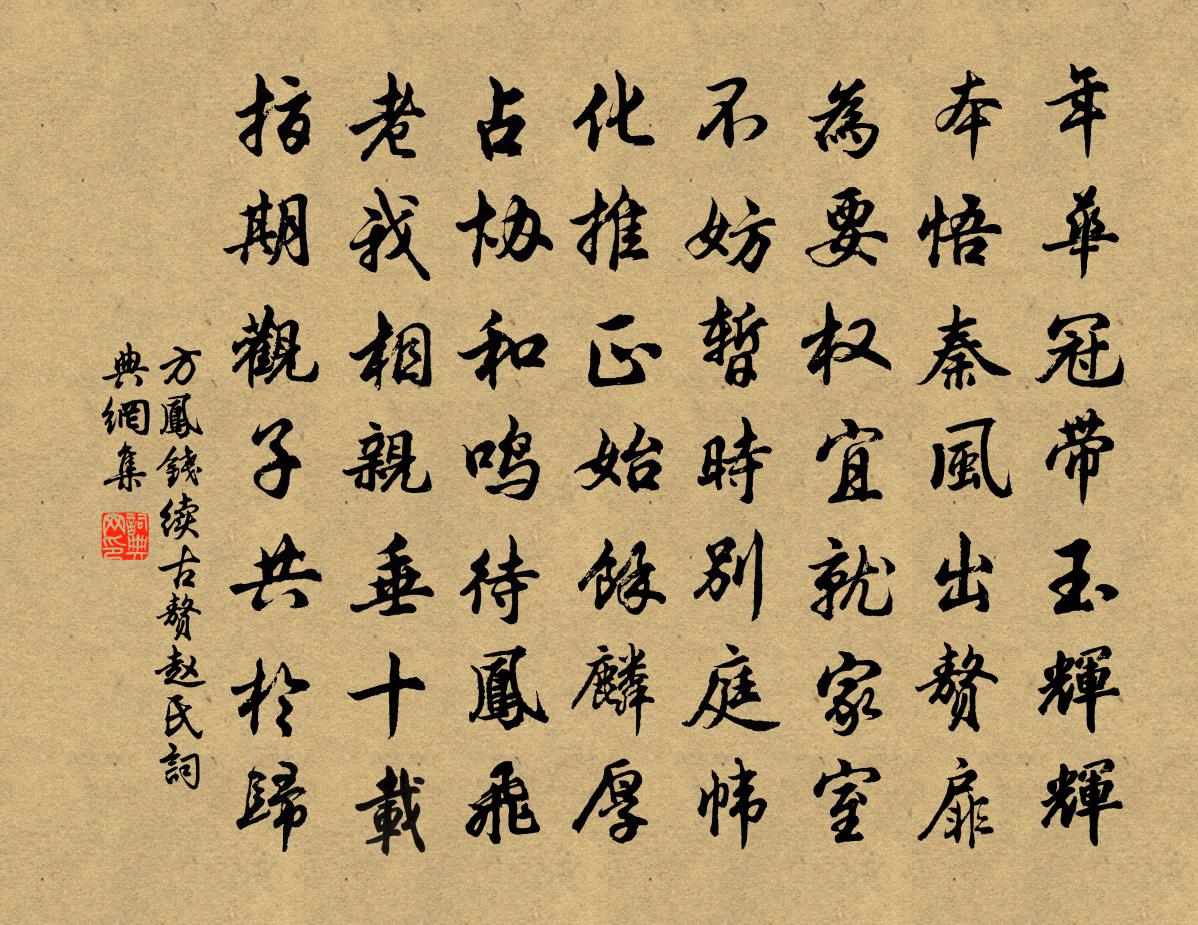 年華冠帶玉輝輝
本悟秦風出贅扉
為要权宜就家室
不妨暫時別庭帏
化推正始餘麟厚
占协和鸣待鳳飛
老我相親垂十載
指期觀子共於歸
方鳳錢续古贅赵氏詞
典網集
詞典网印